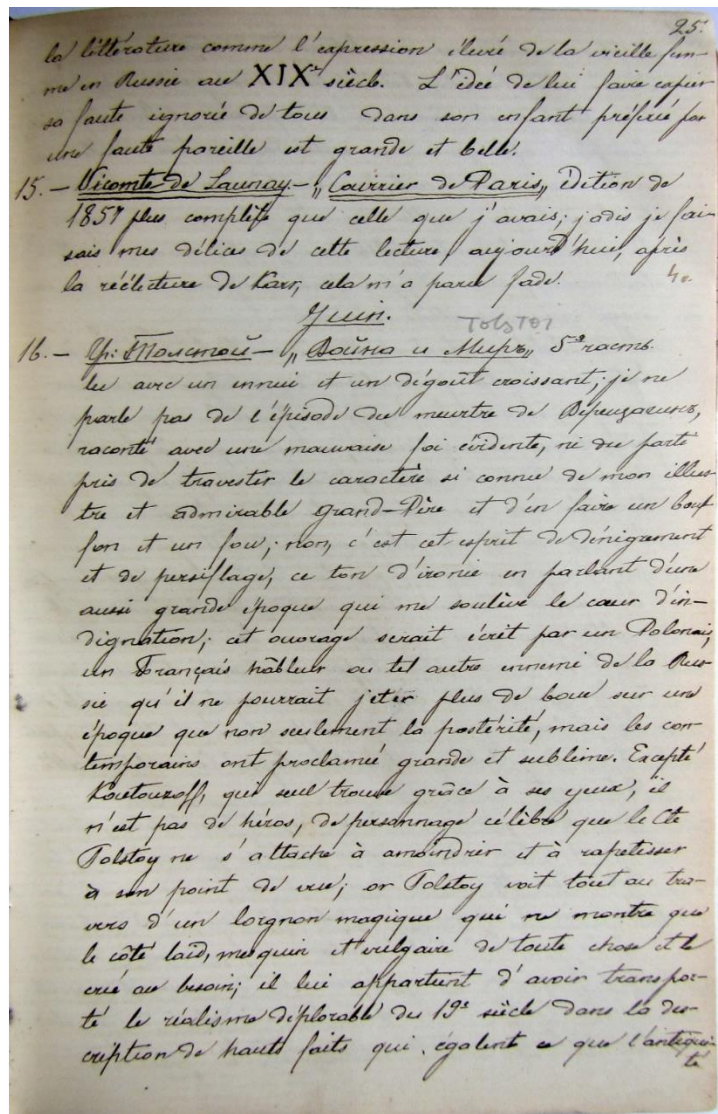 25.
la littérature comme l'expression élevée de la vieille fem-
me en Russie au XIXe siècle. L'idée de lui faire expier
sa faute ignorée de tous dans son enfant préférée par
une faute pareille est grande et belle.
15. — Vicomte de Launay — „Courrier de Paris„ édition de
1857 plus complète que celle que j'avais; jadis je fai-
sais mes délices de cette lecture, aujourd'hui, après
la réélecture de Karr, cela m'a paru fade. 4.
Juin.
TOLSTOI
16. — Гр: Толстой — „Война и Миръ„ 5я часть.
lu avec un ennui et un dégoût croissant; je ne
parle pas de l'épisode du meurtre de Верещагинъ,
raconté avec une mauvaise foi évidente, ni du parti
pris de travestir le caractère si connu de mon illus-
tre et admirable grand-Père et d'en faire un bouf
fon et un fou; non, c'est cet esprit de dénigrement
et de persiflage, ce ton d'ironie en parlant d'une
aussi grande époque qui me soulève le cœur d'in-
dignation; cet ouvrage serait écrit par un Polonais,
un Français hâbleur ou tel autre ennemi de la Rus-
sie qu'il ne pourrait jeter plus de boue sur une
époque que non seulement la postérité, mais les con-
temporains ont proclamée grande et sublime. Excepté
Koutouzoff, qui seul trouve grâce à ses yeux, il
n'est pas de héros, de personnage célèbre que le Cte
Tolstoy ne s'attache à amoindrir et à rapetisser
à son point de vue; or Tolstoy voit tout au tra-
vers d'un lorgnon magique qui ne montre que
le côté laid, mesquin et vulgaire de toute chose et le
crée au besoin; il lui appartient d'avoir transpor-
té le réalisme déplorable du 19e siècle dans la des-
cription de hauts faits qui égalent ce que l'antiqui-
té